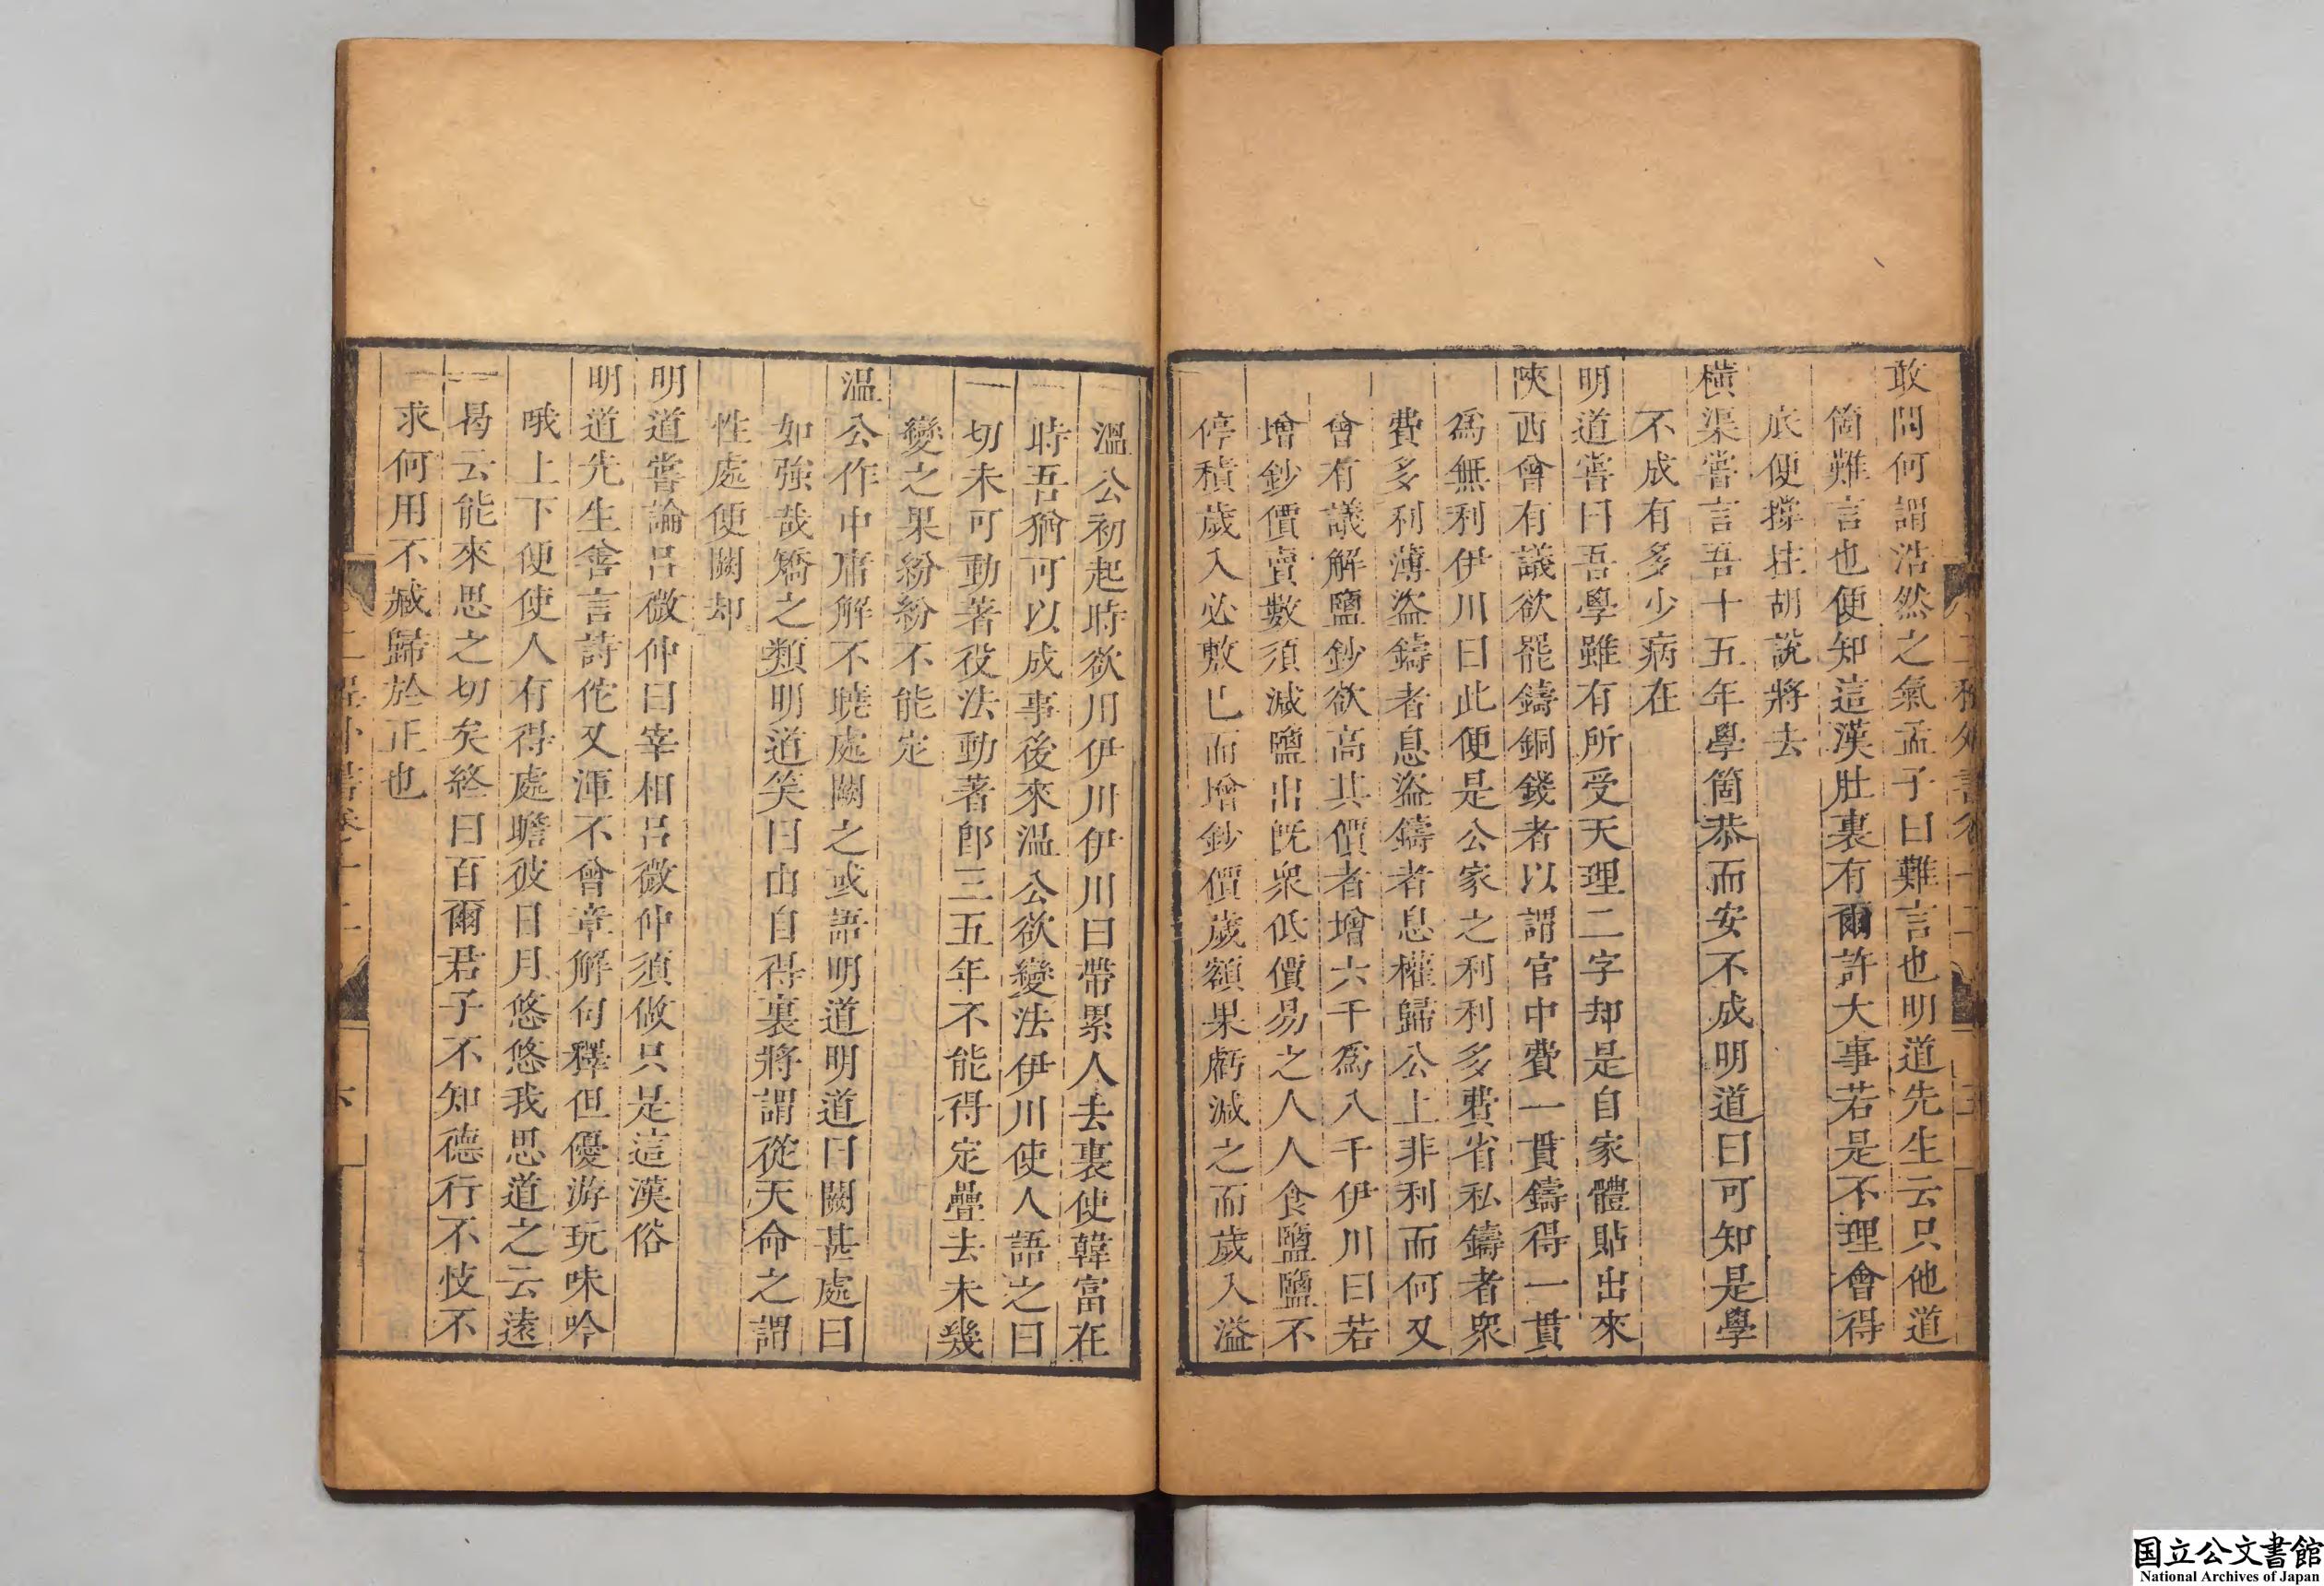 敢問何謂浩然之氣孟子曰難言也明道先生云只他道
箇難言也便知這漢肚裏有爾許大事若是不理會得
底便撐拄胡說將去
橫渠嘗言吾十五年學箇恭而安不成明道曰可知是學
不成有多少病在
明道嘗曰吾學雖有所受天理二字却是自家體貼出來
陜西曾有議欲罷鑄銅錢者以謂官中費一貫鑄得一貫
爲無利伊川曰此便是公家之利利多費省私鑄者衆
費多利薄盜鑄者息盜鑄者息權歸公上非利而何又
曾有議解鹽鈔欲高其價者增六千爲八千伊川曰若
增鈔價賣數須減鹽出旣衆低價易之人人食鹽鹽不
停積歲入必敷已而增鈔價歲額果虧減之而歲入溢
溫公初起時欲用伊川伊川曰帶累人去裏使韓富在
時吾猶可以成事後來温公欲變法伊川使人語之曰
一切未可動著役法動著卽三五年不能得定疊去未幾
變之果紛紛不能定
温公作中庸解不曉處闕之或語明道明道曰闕甚處曰
如強哉矯之類明道笑曰由自得裏將謂從天命之謂
性處便闕却
明道嘗論呂微仲曰宰相呂微仲須做只是這漢俗
明道先生善言詩佗又渾不曾章解句釋但優游玩味吟
哦上下便使人有得處瞻彼日月悠悠我思道之云遠
曷云能來思之切矣終曰百爾君子不知德行不忮不
求何用不臧歸於正也
国立公文書館
National Archives of Japan